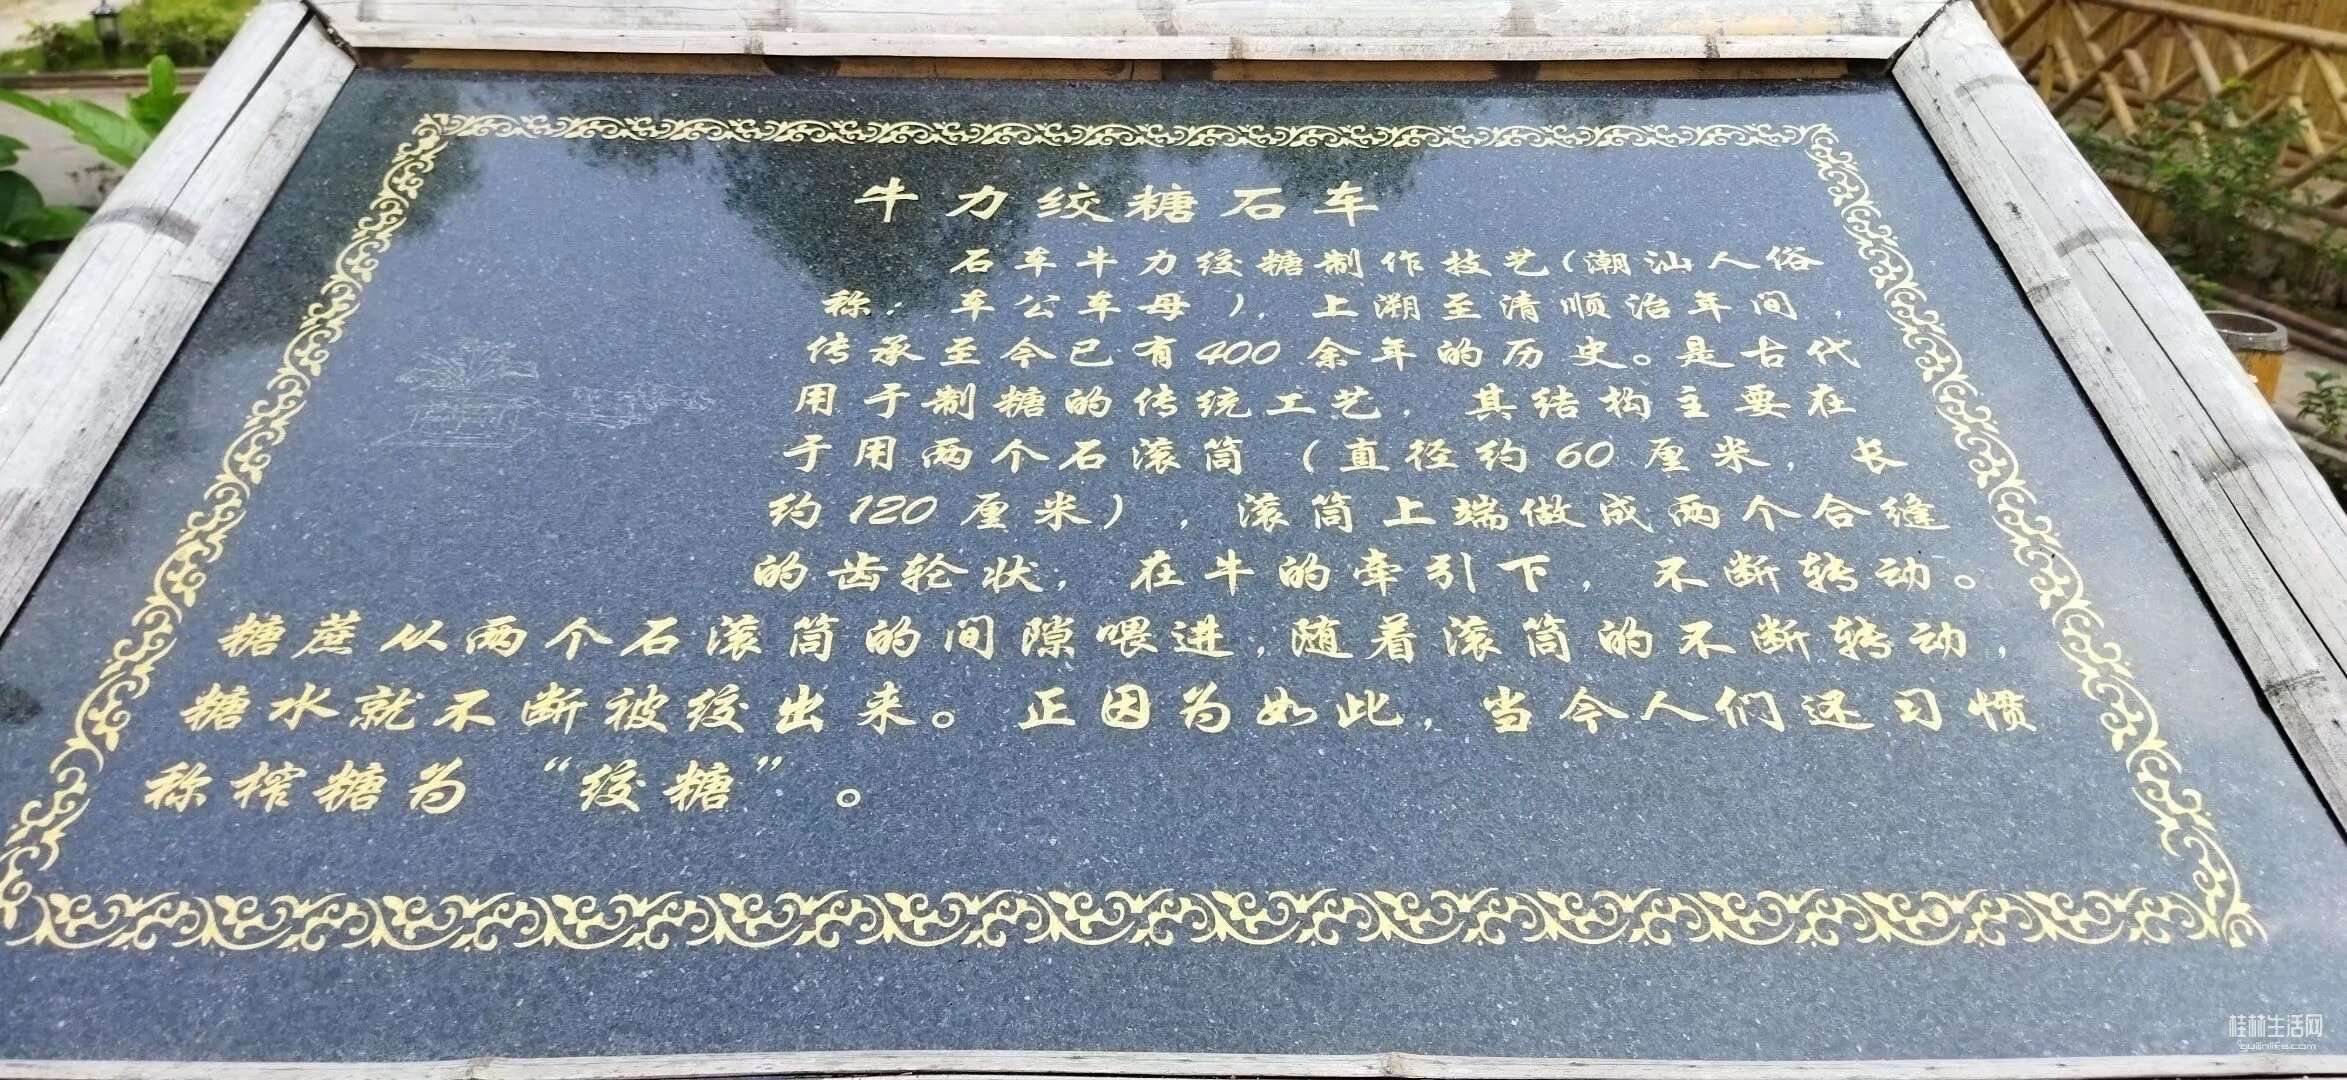 牛力绞糖石车
石车牛力绞糖制作技艺(潮汕人俗
称：车公车母），上溯至清顺治年间，
传承至今已有400余年的历史。是古代
用于制糖的传统工艺，其结构主要在
于用两个石滚筒（直径约60厘米，长
约120厘米），滚筒上端做成两个合缝
的齿轮状，在牛的牵引下，不断转动。
糖蔗从两个石滚筒的间隙喂进，随着滚筒的不断转动，
糖水就不断被绞出来。正因为如此，当今人们还习惯
称榨糖为“绞糖”。
桂林生活网
guilinlife.com